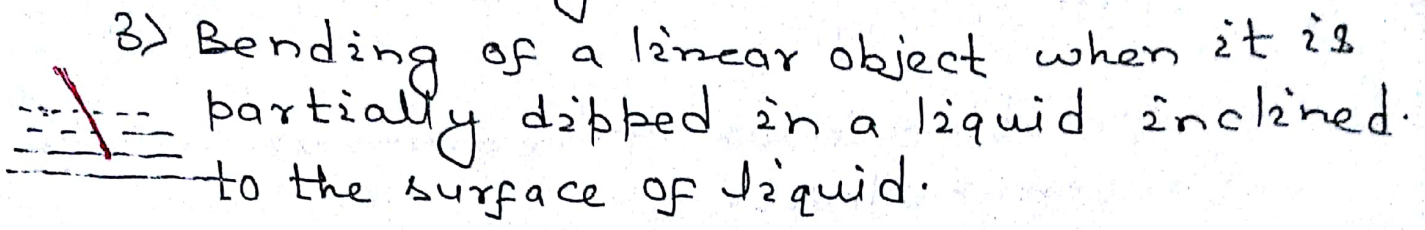 3) Bending of a linear object when it is
partially dipped in a liquid inclined.
to the surface of liquid.